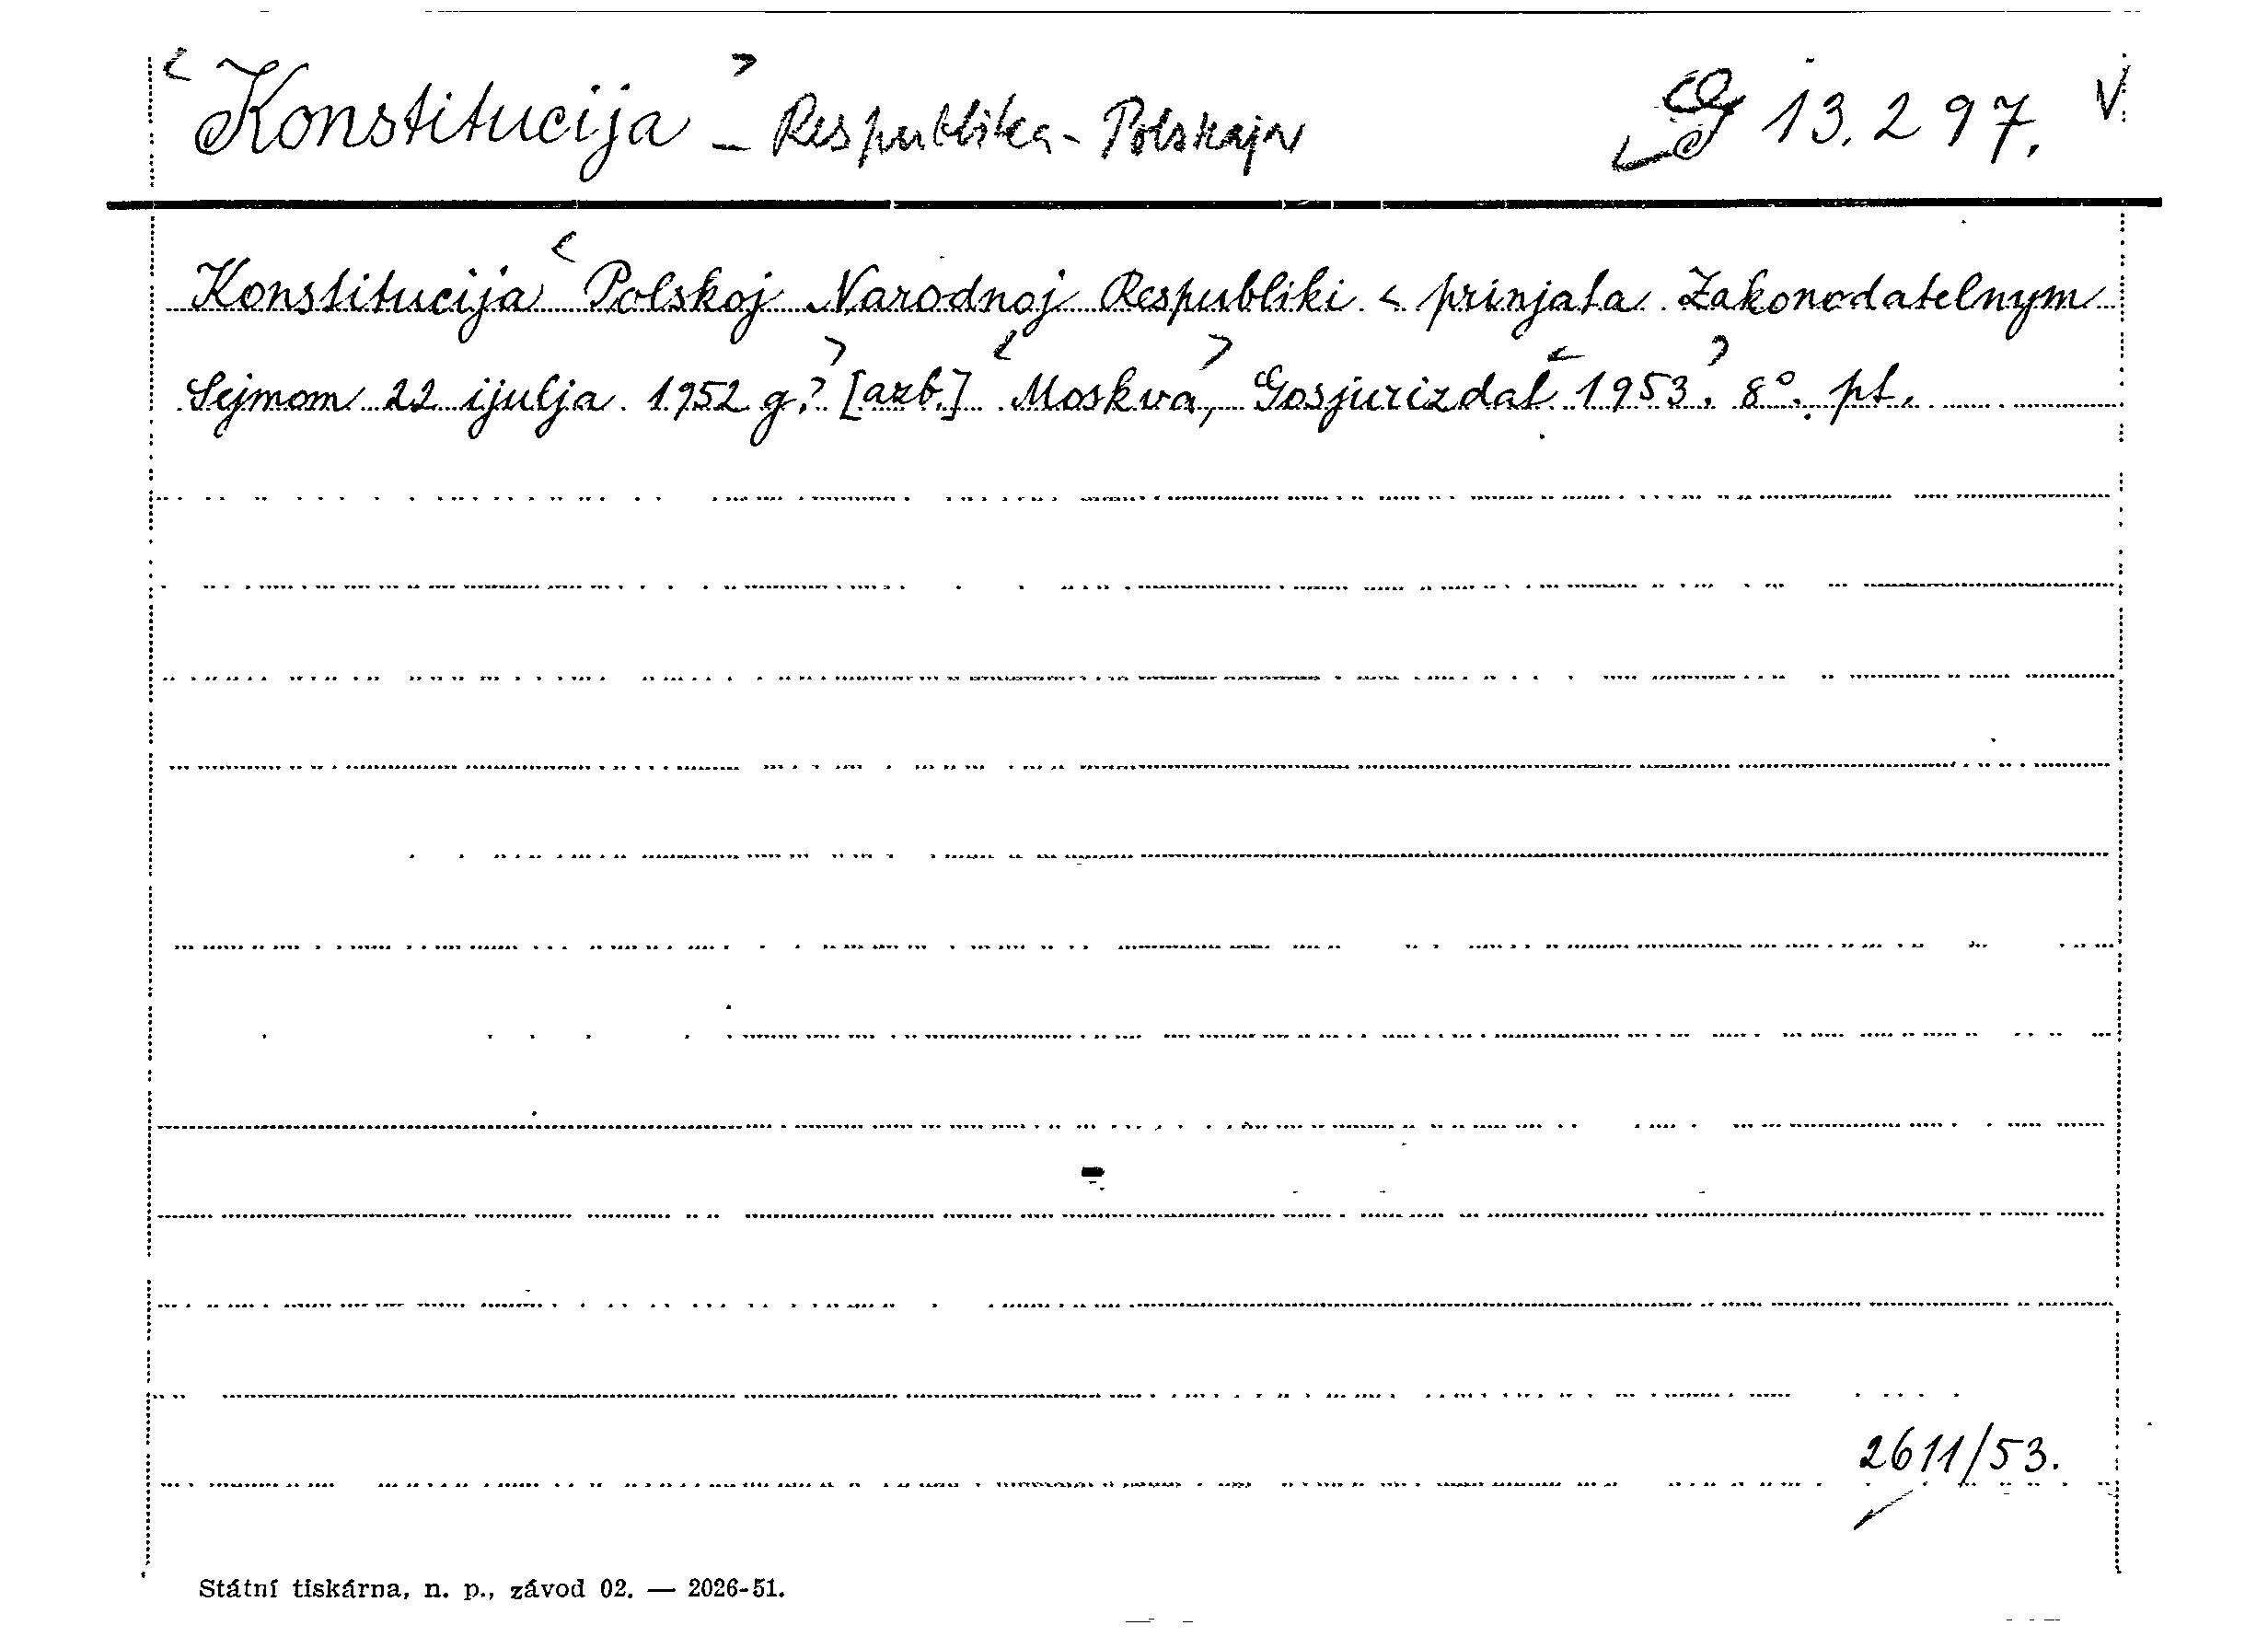 <Konstitucija> - Respublika - Polskaja G 13.297. V.
Konstitucija <Polskoj Narodnoj Respubliki < prinjata Zakonodatelnym
Sejmom 22 ijulja 1952 g.> [azb.] <Moskva>, Gosjurizdat <1953>. 8°. pt.
2611/53.
Státní tiskárna, n. p., závod 02. — 2026-51.